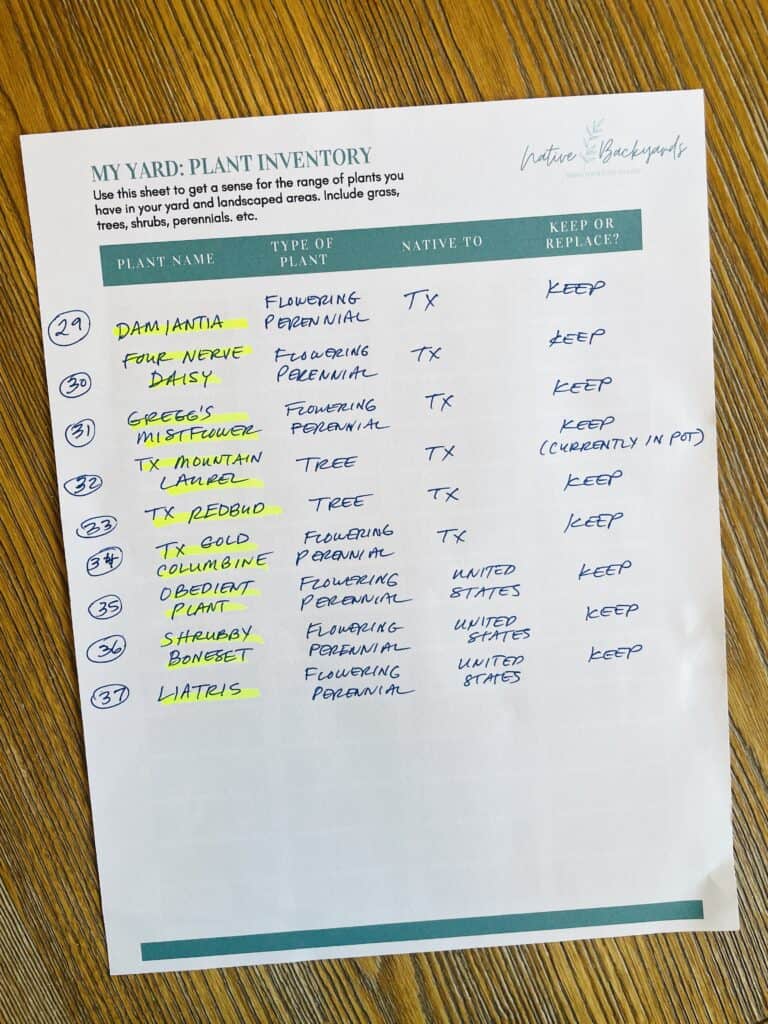 MY YARD: PLANT INVENTORY
Use this sheet to get a sense for the range of plants you
have in your yard and landscaped areas. Include grass,
trees, shrubs, perennials. etc.
Native Backyards
PLANT NAME
TYPE OF
PLANT
NATIVE TO
KEEP OR
REPLACE?
29
DAMIANTIA
FLOWERING
PERENNIAL
TX
KEEP
30
FOUR NERVE
DAISY
FLOWERING
PERENNIAL
TX
KEEP
31
GREGG'S
MISTFLOWER
FLOWERING
PERENNIAL
TX
KEEP
32
TX MOUNTAIN
LAUREL
TREE
TX
KEEP
(CURRENTLY IN POT)
33
TX REDBUD
TREE
TX
KEEP
34
TX GOLD
COLUMBINE
FLOWERING
PERENNIAL
TX
KEEP
35
OBEDIENT
PLANT
FLOWERING
PERENNIAL
UNITED
STATES
KEEP
36
SHRUBBY
BONESET
FLOWERING
PERENNIAL
UNITED
STATES
KEEP
37
LIATRIS
FLOWERING
PERENNIAL
UNITED
STATES
KEEP